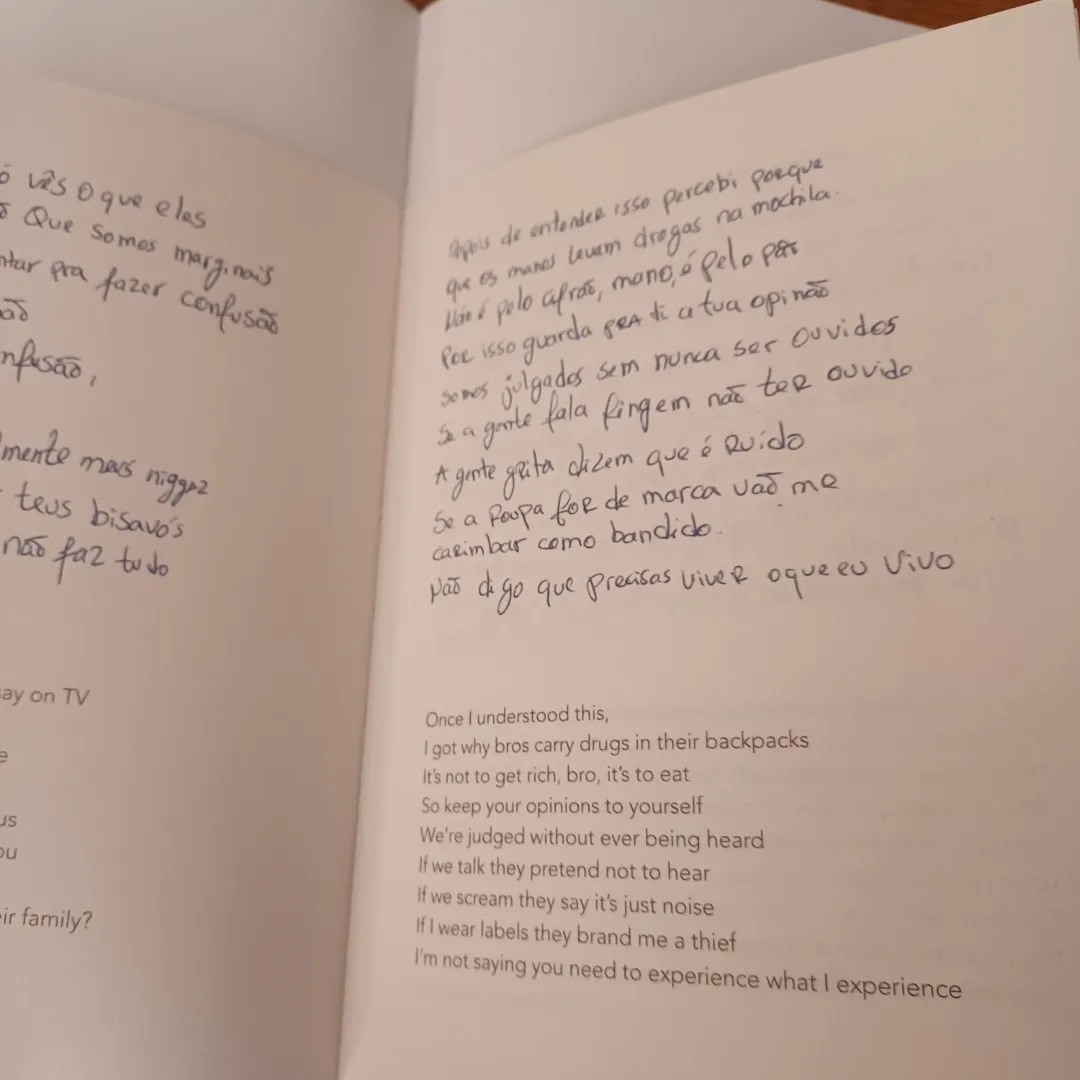 vês o que eles
Que somos marginais
ntar pra fazer confusão
ão
nfusão,
mente mais niggaz
teus bisavós
não faz tudo
say on TV
e
us
ou
eir family?
Depois de entender isso percebi porque
que os manos levam drogas na mochila.
Não é pelo cifrão, mano, é pelo pão
Por isso guarda pra ti a tua opinão
Somos julgados sem nunca ser ouvidos
Se a gente fala fingem não ter ouvido
A gente grita dizem que é Ruido
Se a Roupa for de marca vão me
carimbar como bandido.
Não digo que precisas viver oque eu vivo
Once I understood this,
I got why bros carry drugs in their backpacks
It's not to get rich, bro, it's to eat
So keep your opinions to yourself
We're judged without ever being heard
If we talk they pretend not to hear
If we scream they say it's just noise
If I wear labels they brand me a thief
I'm not saying you need to experience what I experience